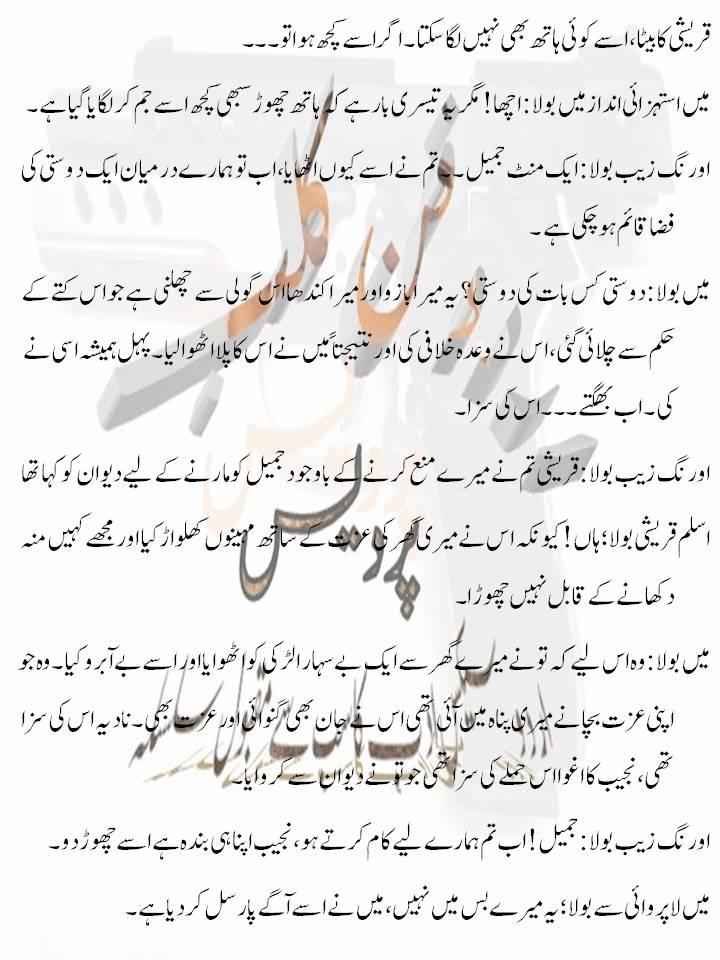 قریشی کا بیٹا، اسے کوئی ہاتھ بھی نہیں لگا سکتا۔ اگر اسے کچھ ہوا تو۔۔۔
میں استہزائی انداز میں بولا: اچھا! مگر یہ تیسری بار ہے کہ ہاتھ چھوڑ سبھی کچھ اسے جم کر لگایا گیا ہے۔
اورنگ زیب بولا: ایک منٹ جمیل۔۔ تم نے اسے کیوں اٹھایا، اب تو ہمارے درمیان ایک دوستی کی
فضا قائم ہو چکی ہے۔
میں بولا: دوستی کس بات کی دوستی؟ یہ میرا بازو اور میرا کندھا اس گولی سے چھلنی ہے جو اس کتے کے
حکم سے چلائی گئی، اس نے وعدہ خلافی کی اور نتیجتاً میں نے اس کا پلا اٹھوا لیا۔ پہل ہمیشہ اسی نے
کی۔ اب بھگتے۔۔۔ اس کی سزا۔
اورنگ زیب بولا: قریشی تم نے میرے منع کرنے کے باوجود جمیل کو مارنے کے لیے دیوان کو کہا تھا
اسلم قریشی بولا؛ ہاں! کیونکہ اس نے میری گھر کی عزت کے ساتھ مہینوں کھلواڑ کیا اور مجھے کہیں منہ
دکھانے کے قابل نہیں چھوڑا۔
میں بولا: وہ اس لیے کہ تو نے میرے گھر سے ایک بے سہارا لڑکی کو اٹھوایا اور اسے بے آبرو کیا۔ وہ جو
اپنی عزت بچانے میری پناہ میں آئی تھی اس نے جان بھی گنوائی اور عزت بھی۔ نادیہ اس کی سزا
تھی، نجیب کا اغوا اس حملے کی سزا تھی جو تو نے دیوان سے کروایا۔
اورنگ زیب بولا: جمیل! اب تم ہمارے لیے کام کرتے ہو، نجیب اپنا ہی بندہ ہے اسے چھوڑ دو۔
میں لاپروائی سے بولا؛ یہ میرے بس میں نہیں، میں نے اسے آگے پارسل کر دیا ہے۔
پردیس